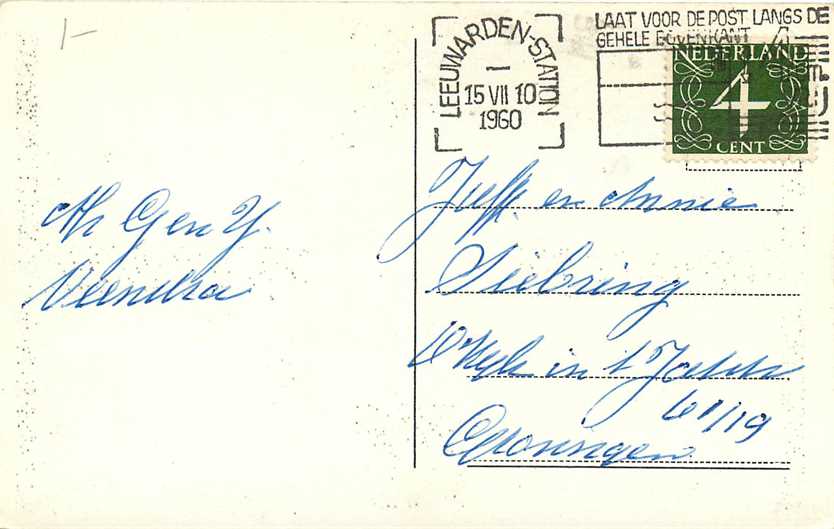 1-
LEEUWARDEN-STATION
15 VII 10
1960
LAAT VOOR DE POST LANGS DE
GEHELE BOVENKANT
NEDERLAND
4
CENT
G en Y.
Veenstra
en Annie
Siebring
in 't
61/19
Groningen